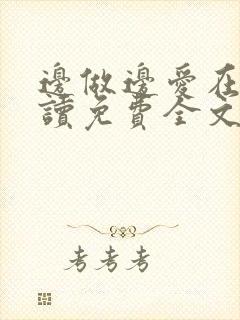 邊做邊愛在
讀免費全文
考考考